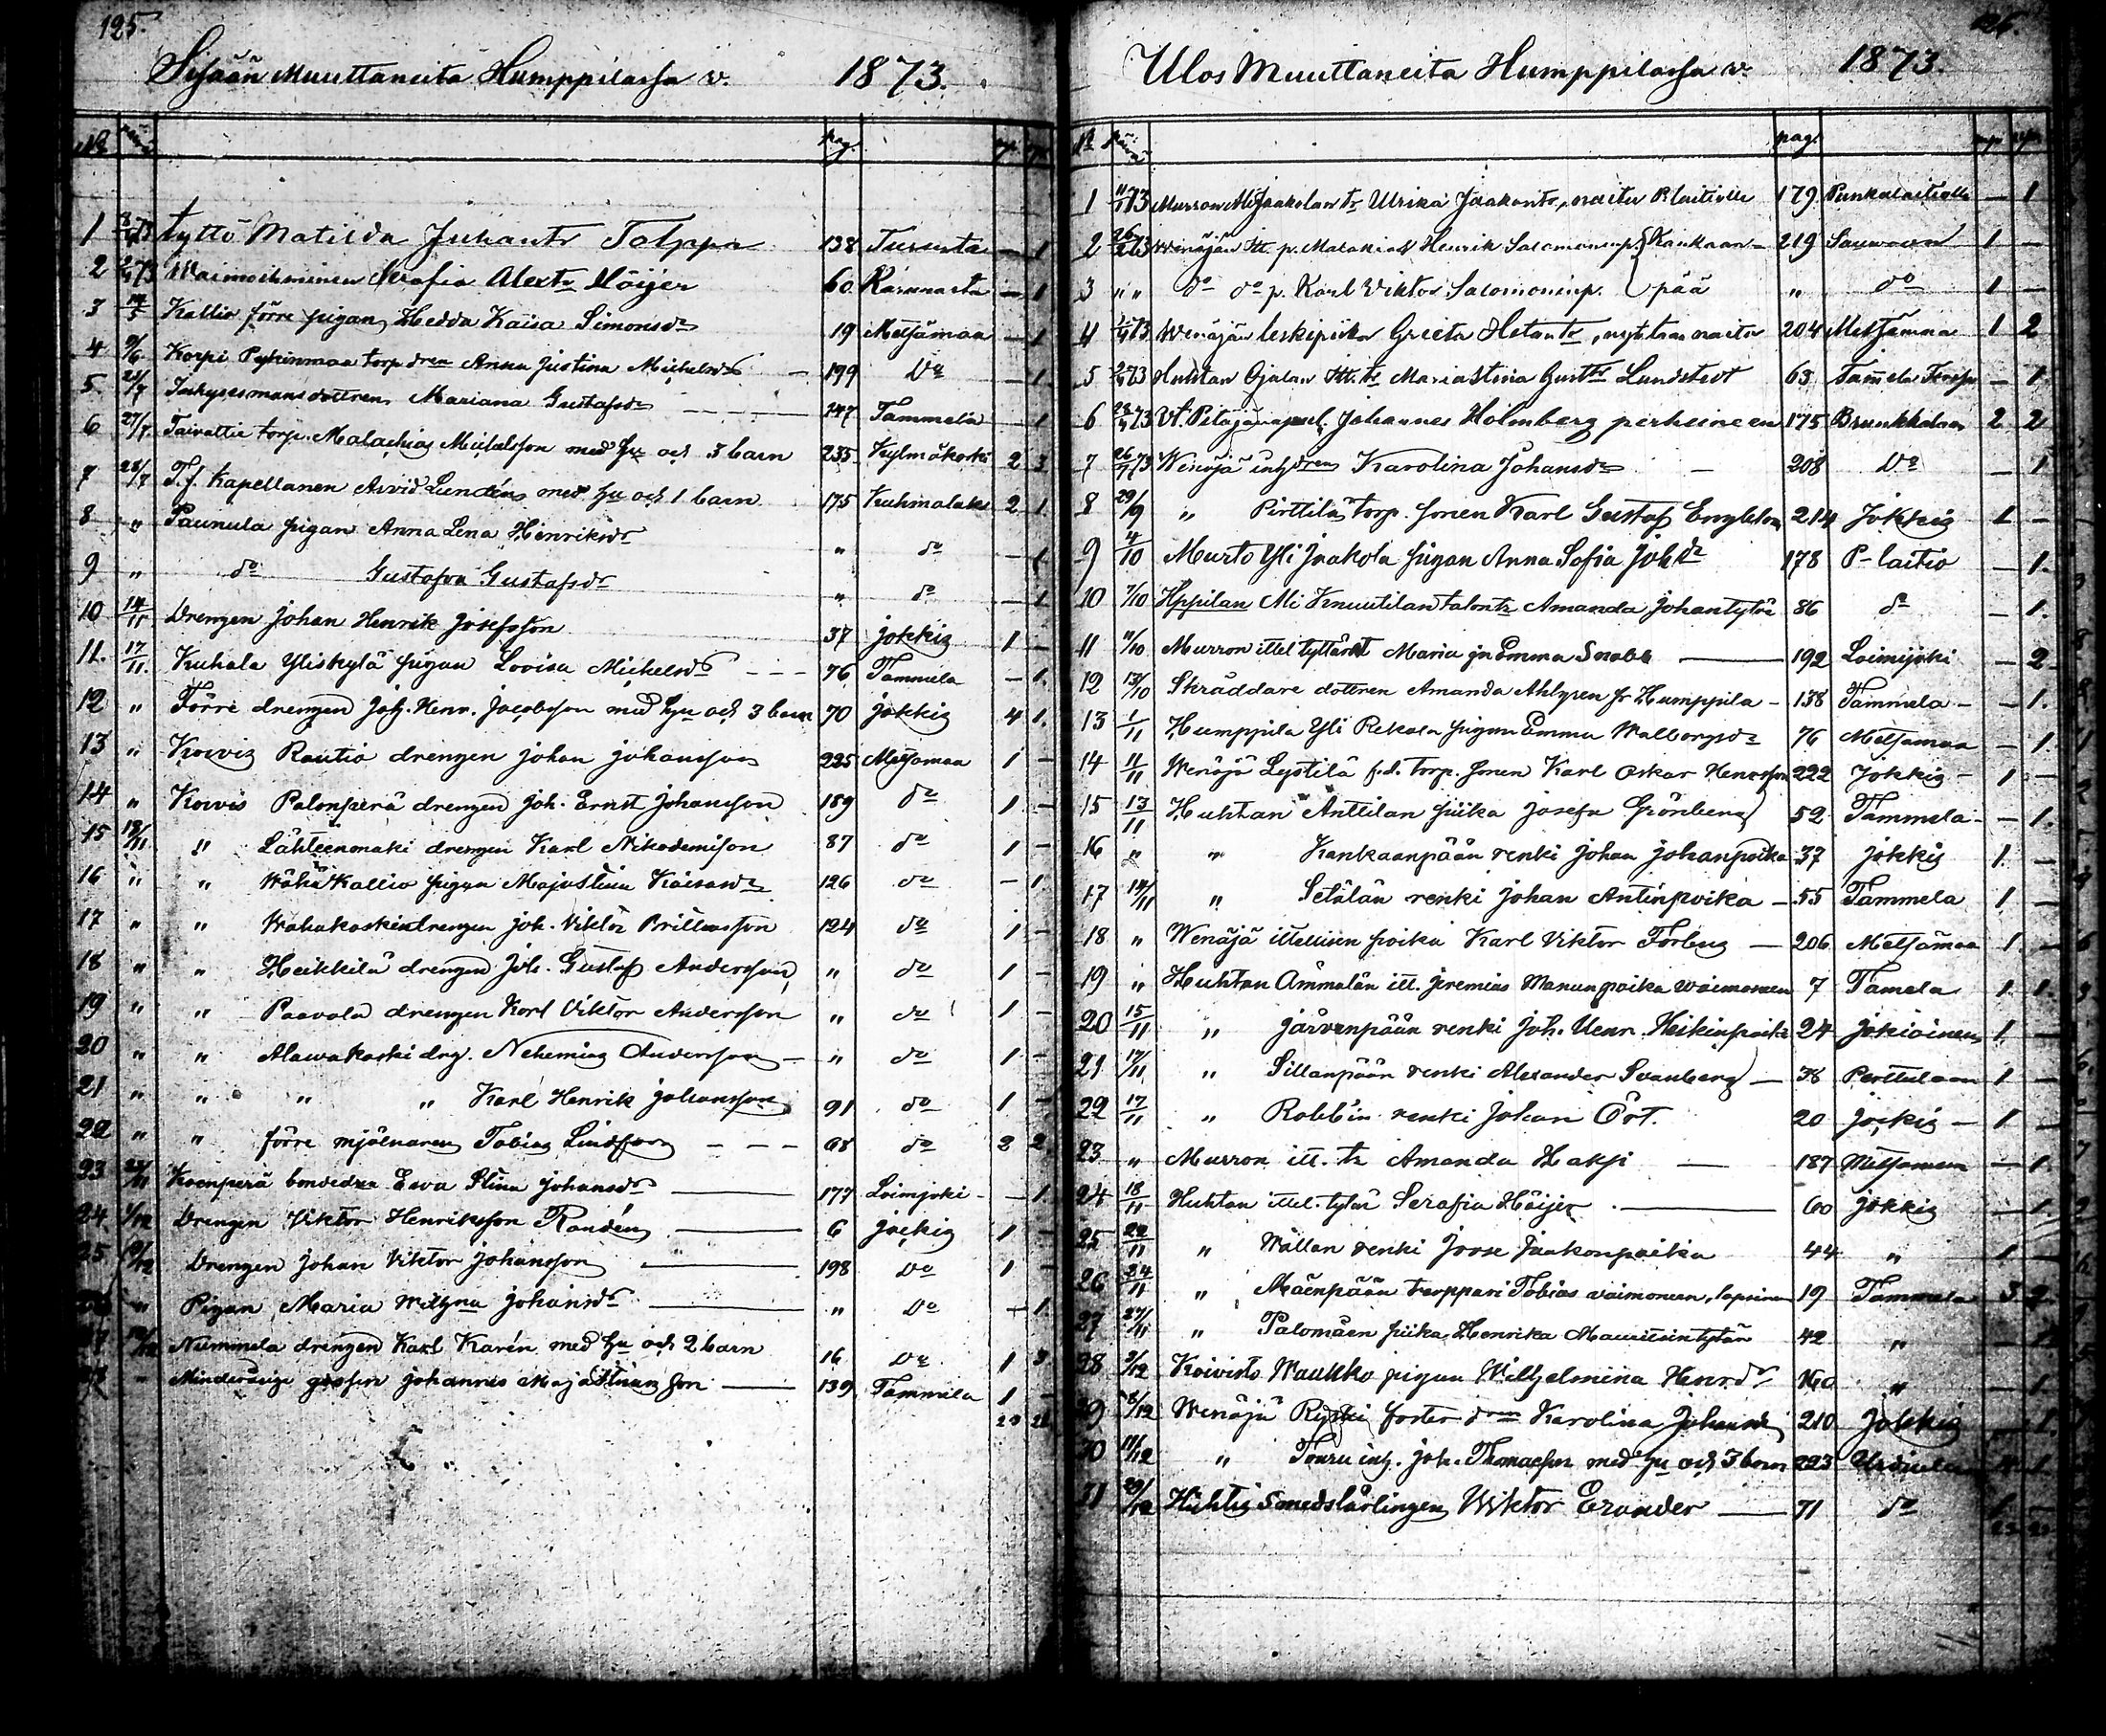 125.
Sisään Muuttaneita Humppilassa v. 1873.
No pag. mp. vp.
1 73 tyttö Matilda Juhantr Tolppa 138 Turusta — 1
2 73 Waimoihminen Serafia Alextr Höijer 60 Karunasta — 1
3 14/5 Kallio förre pigan Hedda Kaisa Simonsdr 19 Metsämaa — 1
4 9/6 Korpi torp dren Anna Justina Michelsdr — 199 Do — 1
5 Mariana Gustafsdr 147 Tammela 1
6 27/7 Taivattu torp. Malachias Michelsson med hu och 3 barn 235 Kylmäkoski 2 3
7 28/7 T.f. Kapellanen Arvid Lundén med hu och 1 barn 175 Kuhmalaks 2 1
8 " Paunula pigan Anna Lena Henriksdr " do — 1
9 " do Gustafva Gustafsdr " do — 1
10 14/11 Drengen Johan Henrik Josefsson 37 Jokkis 1 —
11. 17/11. Kuhala Yliskylä pigan Lovisa Michelsdr - - - 76 Tammela — 1.
12 " Förre drengen Joh. Henr. Jacobsson med hu och 3 barn 70 Jokkis 4 1.
13 " Koivis Rautio drengen Johan Johansson 225 Metsämaa 1 —
14 " Koivis Palonperä drengen Joh. Ernst Johansson 189 do 1 —
15 18/11 " Lähteenmäki drengen Karl Nikodemsson 87 do 1 —
16 " " Wähä Kallio pigan Maja Stina Kaisasdr 126 do — 1
17 " " Wähäkoski drengen Joh. Viktor 124 do 1 —
18 " " Heikkilä drengen Joh. Gustaf Andersson " do 1 —
19 " " Paavola drengen Karl Viktor Andersson " do 1 —
20 " " Alawakoski drg. Nehemias Andersson — " do 1 —
21 " " " " Karl Henrik Johansson 91 do 1 —
22 " " förre mjölnaren Tobias Lindfors — — — 68 do 2 2
23 Koenperä Ewa Stina Johansdr — 177 Loimjoki — — 1.
24 1/12 Drengen Viktor Henriksson Randén — 6 Jockis 1 —
25 Drengen Johan Viktor Johansson — 198 Do 1 —
" Pigan Maria Johansdr — " Do — 1.
Nummela drengen Karl Karén med hu och 2 barn 16 Do 1 3
Johannes Maja Stinan son — 139 Tammela 1

Ulos Muuttaneita Humppilassa v. 1873.
No pag. mp. vp.
1 73 Murron Ali Jaakolan tr Ulrika Jaakontr, naitu P.laitiolle 179 Punkalaitiolle — 1
2 73 Wenäjän itt. p. Malakias Henrik Salomoninp. Kankaan- 219 Sauwoon 1 —
3 " " do do p. Karl Viktor Salomoninp. pää " do 1 —
4 73 Wenäjän leskipiika Greeta naitu 204 Metsämaa 1 2
5 73 Huhtan Ojalan itt. tr Maria Stina Gusttr Lundstedt 63 1.
6 73 Vt. Pitäjänapul. Johannes Holmberg perheineen 175 2 2
7 26/7 73 Wenäjä inhdren Karolina Johansdr — 208 Do — 1
8 29/9 " Pirttilä torp. sonen Karl Gustaf 214 Jokkis 1 —
9 4/10 Murto Yli Jaakola pigan Anna Sofia Johdr 178 P-laitio — 1.
10 7/10 Hppilan Ali Knuutilan talontr Amanda Johantytär 86 do — 1.
11 11/10 Murron ittel tyttäret Maria ja Emma Snabb — 192 Loimijoki — 2
12 13/10 Skräddare dottren Amanda Ahlgren fr Humppila — 138 Tammela — — 1.
13 1/11 Humppila Yli Rekola pigan Emma Walborgsdr 76 Metsämaa — 1.
14 11/11 Wenäjä f.d. torp. sonen Karl Oskar Henrsson 222 Jokkis — 1 —
15 13/11 Huhtan Anttilan piika Josefa Grönberg 52 Tammela — — 1.
16 " " Kankaanpään renki Johan Johanpoika 37 Jokkis 1. —
17 14/11 " Setälän renki Johan Antinpoika — 55 Tammela 1. —
18 " Wenäjä ittellisen poika Karl Viktor — 206 Metsämaa 1. —
19 " Huhtan Ämmälän itt. Jeremias Manunpoika waimoneen 7 Tamela 1. 1.
20 15/11 " Järvenpään renki Joh. Henr. Heikinpoika 24 Jokioinen 1. —
21 17/11 " Sillanpään renki Alexander Svanberg — 38 Perttulaan 1 —
22 17/11 " Robbin renki Johan Ört. 20 Jockis — 1 —
23 " Murron itt. tr Amanda Haksi — 187 Metsämaa — 1.
24 18/11 Huhtan ittel. tytär Serafia Höijer — 60 Jokkis — 1
25 22/11 " Wallan renki Joose Jaakonpoika 44 " 1 —
26 24/11 " Mäenpään torppari Tobias waimoneen, lapsineen 19 Tammela 3 2
27 27/11 " Palomäen piika Henrika Mauritsintytär 42 "
28 3/12 Koivisto Waukko pigan Wilhelmiina Henrdr 160 " — 1
29 Wenäjä foster dren Karolina 210 Jokkis — 1.
30 11/12 " inh. Joh. Thomasson med hu och 3 barn 223 Urdiala 1
31 Huhtis Smedslärlingen Wiktor Erander — 71 do